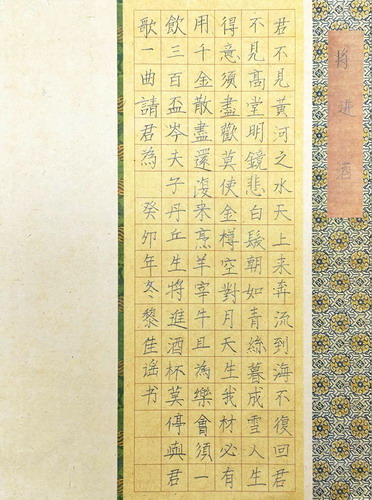 将進酒
君不見黃河之水天上来奔流到海不復回君
不見高堂明鏡悲白髮朝如青絲暮成雪人生
得意須盡歡莫使金樽空對月天生我材必有
用千金散盡還復来烹羊宰牛且為樂會須一
飲三百盃岑夫子丹丘生將進酒杯莫停與君
歌一曲請君為 癸卯年冬黎佳谣书